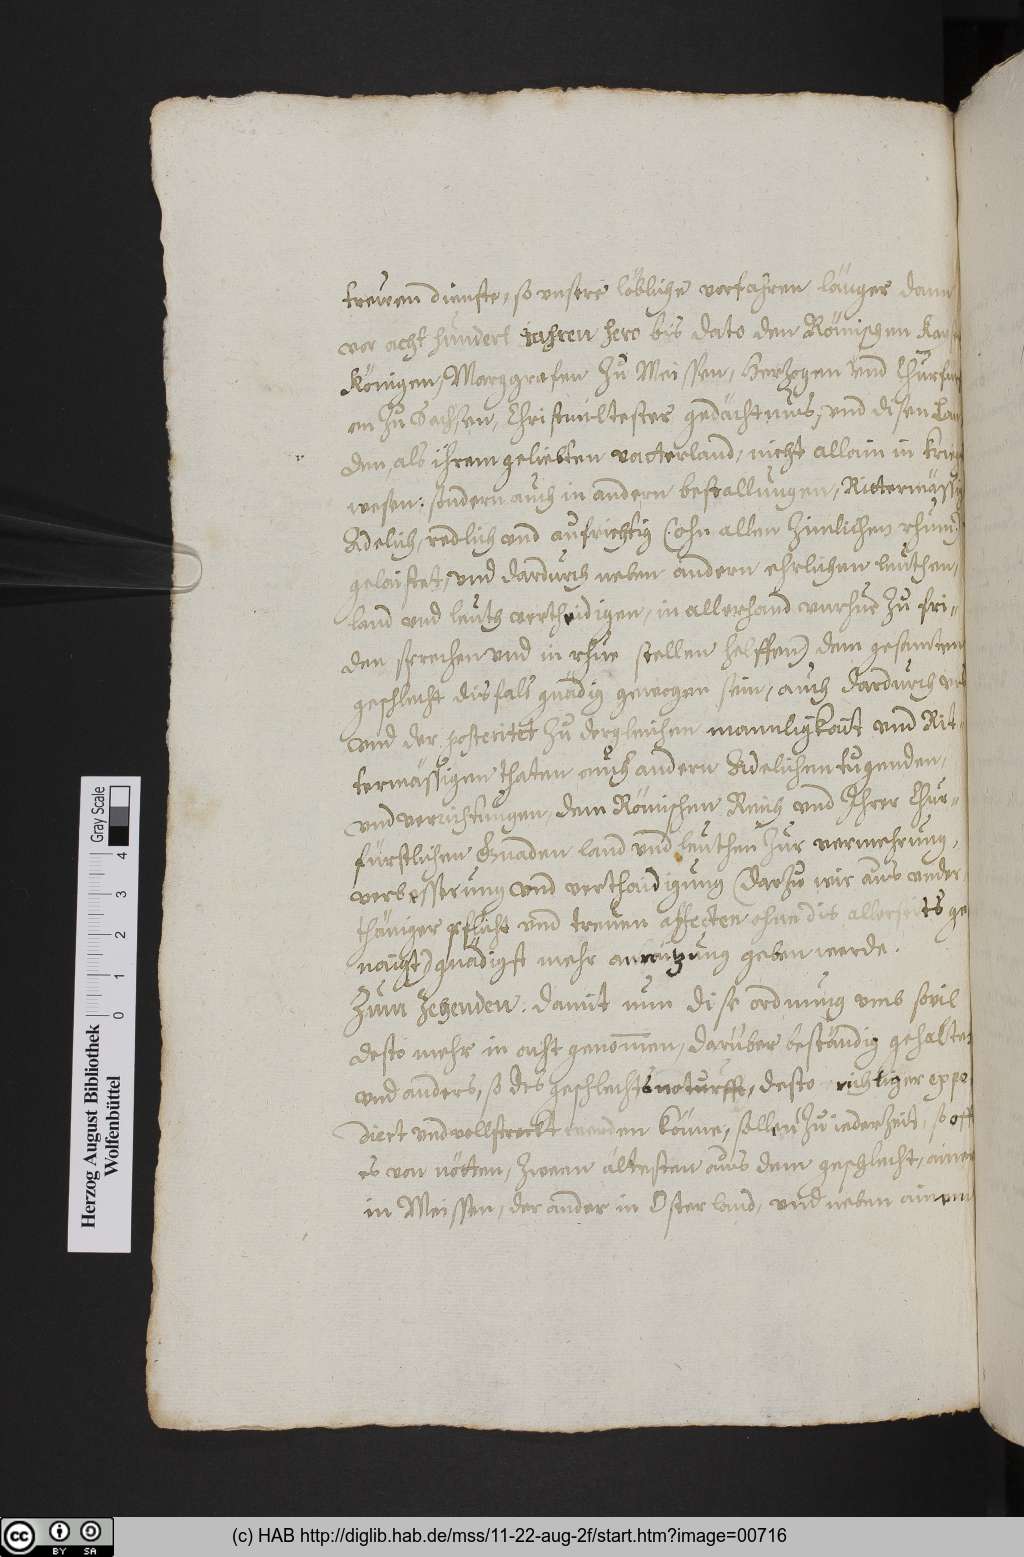 trewen dienste, so vnsere löbliche vorfahren länger dann
vor acht hundert Jahren hero bis dato den Römischen
Königen, Marggrafen zu Meissen, Herzogen vnd
zu Sachsen, Christmiltester gedächtnus, vnd disen
den, als ihrem geliebten vatterland, nicht allain in
wesen: sondern auch in andern bestallungen,
Adelich, redlich vnd aufrichtig (ohn allen zimlichen rhum)
gelaistet, vnd dardurch neben andern ehrlichen leuthen,
land vnd leuth vertheidigen, in allerhand vnrhue zu fri-
den sprechen vnd in rhue stellen helffen) dem gesambten
geschlecht disfals gnädig gewogen sein, auch dardurch
vnd der posteritet zu dergleichen mannligkait vnd Rit-
termässigen thaten auch andern Adelichen tugenden,
vnd verrichtungen, dem Römischen Reich vnd Ihrer Chur-
fürstlichen Gnaden land vnd leuthen zur vermehrung,
verbesserung vnd verthaidigung (darzu wir aus vnder-
thäniger pflicht vnd trewen affecten ohne dis allerseits ge
naigt) gnädigst mehr anraitzung geben werde.
Zum Zehenden: damit nun dise ordnung vmb sovil
desto mehr in acht genommen, darüber beständig gehalten
vnd anders, so des geschlechts noturfft, desto richtiger expe
diert vnd vollstreckt werden könne, sollen zu iederzeit, so offt
es von nötten, zween ältesten aus dem geschlecht, ainer
in Meissen, der ander in Osterland, vnd neben ainem
Herzog August Bibliothek
Wolfenbüttel
0 1 2 3 4
Gray Scale
cc BY SA
(c) HAB http://diglib.hab.de/mss/11-22-aug-2f/start.htm?image=00716